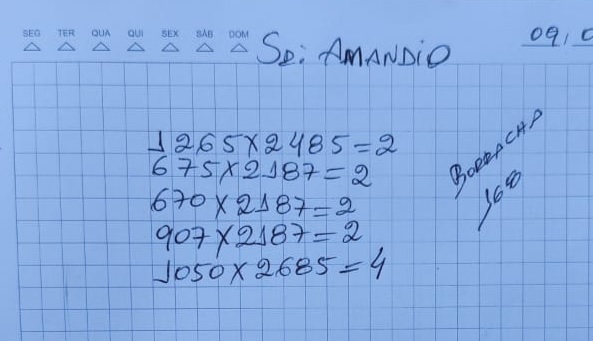 SEG TER QUA QUI SEX SÁB DOM
09,0
SR: AMANDIO
1265X2485=2
675X2187=2
670X2187=2
907X2187=2
1050X2685=4
BORRACHA
168